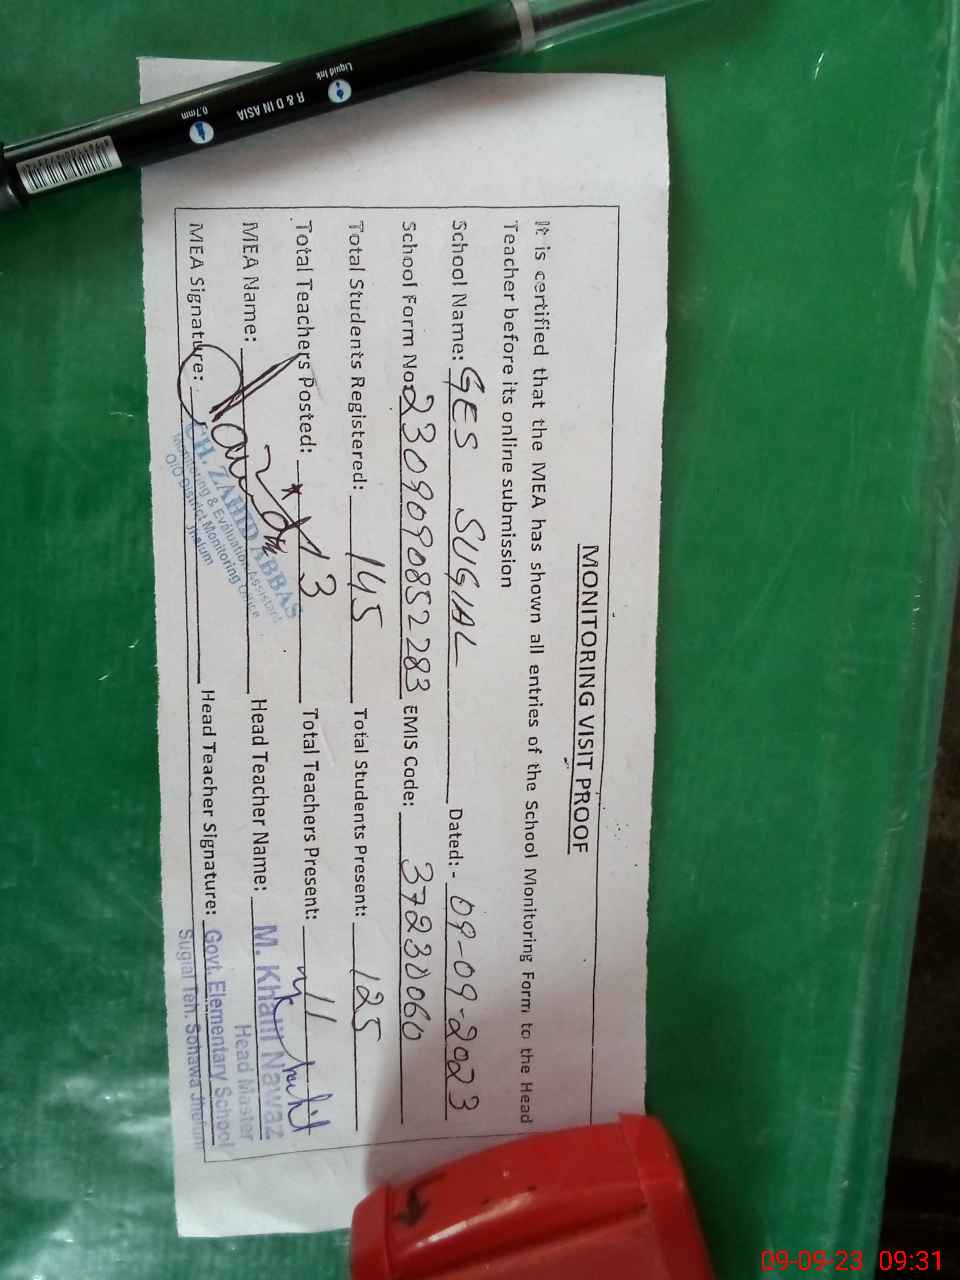 MONITORING VISIT PROOF
It is certified that the MEA has shown all entries of the School Monitoring Form to the Head
Teacher before its online submission
School Name: GES SUGIAL Dated:- 09-09-2023
School Form No: 2309090852283 EMIS Code: 37230060
Total Students Registered: 145 Total Students Present: 125
Total Teachers Posted: 13 Total Teachers Present: 11
MEA Name: Head Teacher Name:
MEA Signature: Head Teacher Signature:
CH. ZAHID ABBAS
Monitoring & Evaluation Assistant
O/O District Monitoring Office
Jhelum
M. Khalil Nawaz
Head Master
Govt. Elementary School
Sugial Teh. Sohawa Jhelum
Liquid Ink
R & D IN ASIA
0.7mm
09-09-23 09:31